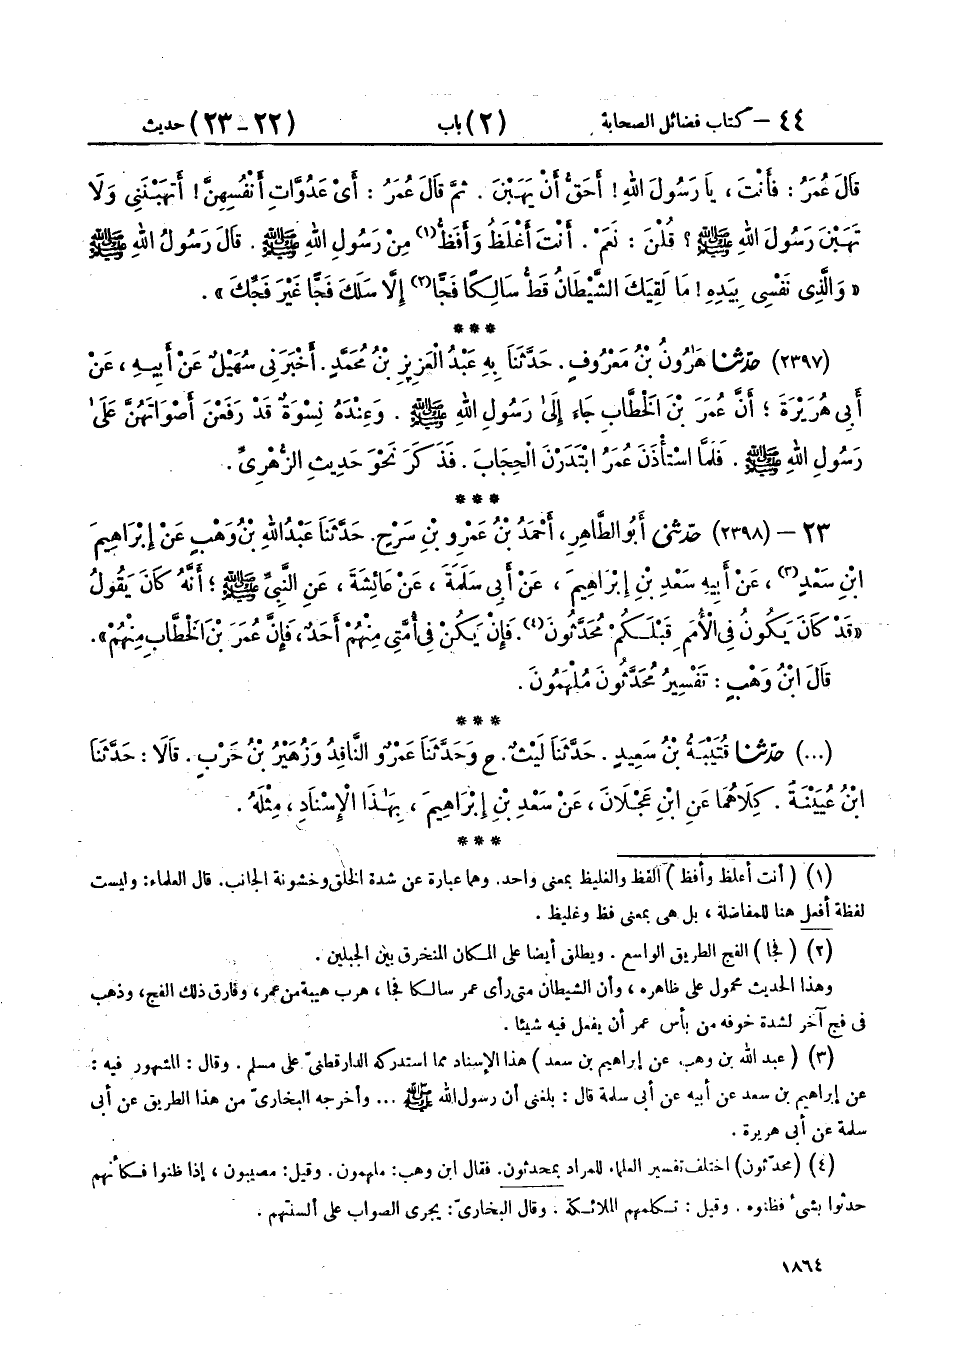 ٤٤ – كتاب فضائل الصحابة (٢) باب (٢٢ – ٢٣) حديث
قَالَ عُمَرُ : فَأَنْتَ ، يَا رَسُولَ اللهِ ! أَحَقُّ أَنْ يَهَبْنَ . ثُمَّ قَالَ عُمَرُ : أَىْ عَدُوَّاتِ أَنْفُسِهِنَّ ! أَتَهَبْنَنِى وَلَا
تَهَبْنَ رَسُولَ اللهِ ﷺ ؟ قُلْنَ : نَعَمْ . أَنْتَ أَغْلَظُ وَأَفَظُّ(١) مِنْ رَسُولِ اللهِ ﷺ . قَالَ رَسُولُ اللهِ ﷺ
« وَالَّذِى نَفْسِى بِيَدِهِ ! مَا لَقِيَكَ الشَّيْطَانُ قَطُّ سَالِكًا فَجًّا(٢) إِلَّا سَلَكَ فَجًّا غَيْرَ فَجِّكَ » .
***
(٢٣٩٧) حَدَّثَنَا هَارُونُ بْنُ مَعْرُوفٍ . حَدَّثَنَا بِهِ عَبْدُ الْعَزِيزِ بْنُ مُحَمَّدٍ . أَخْبَرَنِى سُهَيْلٌ عَنْ أَبِيهِ ، عَنْ
أَبِى هُرَيْرَةَ ؛ أَنَّ عُمَرَ بْنَ الْخَطَّابِ جَاءَ إِلَى رَسُولِ اللهِ ﷺ . وَعِنْدَهُ نِسْوَةٌ قَدْ رَفَعْنَ أَصْوَاتَهُنَّ عَلَى
رَسُولِ اللهِ ﷺ . فَلَمَّا اسْتَأْذَنَ عُمَرُ ابْتَدَرْنَ الْحِجَابَ . فَذَكَرَ نَحْوَ حَدِيثِ الزُّهْرِىِّ .
***
٢٣ – (٢٣٩٨) حَدَّثَنِى أَبُو الطَّاهِرِ ، أَحْمَدُ بْنُ عَمْرِو بْنِ سَرْحٍ . حَدَّثَنَا عَبْدُ اللهِ بْنُ وَهْبٍ عَنْ إِبْرَاهِيمَ
ابْنِ سَعْدٍ(٣) ، عَنْ أَبِيهِ سَعْدِ بْنِ إِبْرَاهِيمَ ، عَنْ أَبِى سَلَمَةَ ، عَنْ عَائِشَةَ ، عَنِ النَّبِىِّ ﷺ ؛ أَنَّهُ كَانَ يَقُولُ
« قَدْ كَانَ يَكُونُ فِى الْأُمَمِ قَبْلَكُمْ مُحَدَّثُونَ(٤) . فَإِنْ يَكُنْ فِى أُمَّتِى مِنْهُمْ أَحَدٌ ، فَإِنَّ عُمَرَ بْنَ الْخَطَّابِ مِنْهُمْ » .
قَالَ ابْنُ وَهْبٍ : تَفْسِيرُ مُحَدَّثُونَ مُلْهَمُونَ .
***
(...) حَدَّثَنَا قُتَيْبَةُ بْنُ سَعِيدٍ . حَدَّثَنَا لَيْثٌ . ح وَحَدَّثَنَا عَمْرٌو النَّاقِدُ وَزُهَيْرُ بْنُ حَرْبٍ . قَالَا : حَدَّثَنَا
ابْنُ عُيَيْنَةَ . كِلَاهُمَا عَنِ ابْنِ عَجْلَانَ ، عَنْ سَعْدِ بْنِ إِبْرَاهِيمَ ، بِهَذَا الْإِسْنَادِ ، مِثْلَهُ .
***
(١) ( أنت أغلظ وأفظ ) الفظ والغليظ بمعنى واحد. وهما عبارة عن شدة الخلق وخشونة الجانب. قال العلماء: وليست
لفظة أفعل هنا للمفاضلة ، بل هى بمعنى فظ وغليظ .
(٢) ( فجا ) الفج الطريق الواسع . ويطلق أيضا على المكان المنخرق بين الجبلين .
وهذا الحديث محمول على ظاهره ، وأن الشيطان متى رأى عمر سالكا فجا ، هرب هيبة من عمر، وفارق ذلك الفج، وذهب
فى فج آخر لشدة خوفه من بأس عمر أن يفعل فيه شيئا .
(٣) ( عبد الله بن وهب عن إبراهيم بن سعد ) هذا الإسناد مما استدركه الدارقطنىّ على مسلم . وقال : المشهور فيه :
عن إبراهيم بن سعد عن أبيه عن أبى سلمة قال : بلغنى أن رسول الله ﷺ ... وأخرجه البخارىّ من هذا الطريق عن أبى
سلمة عن أبى هريرة .
(٤) (محدّثون) اختلف تفسير العلماء للمراد بمحدثون. فقال ابن وهب: ملهمون. وقيل: مصيبون ، إذا ظنوا فكأنهم
حدثوا بشىء فظنوه . وقيل : تكلمهم الملائكة . وقال البخارىّ: يجرى الصواب على ألسنتهم .
١٨٦٤